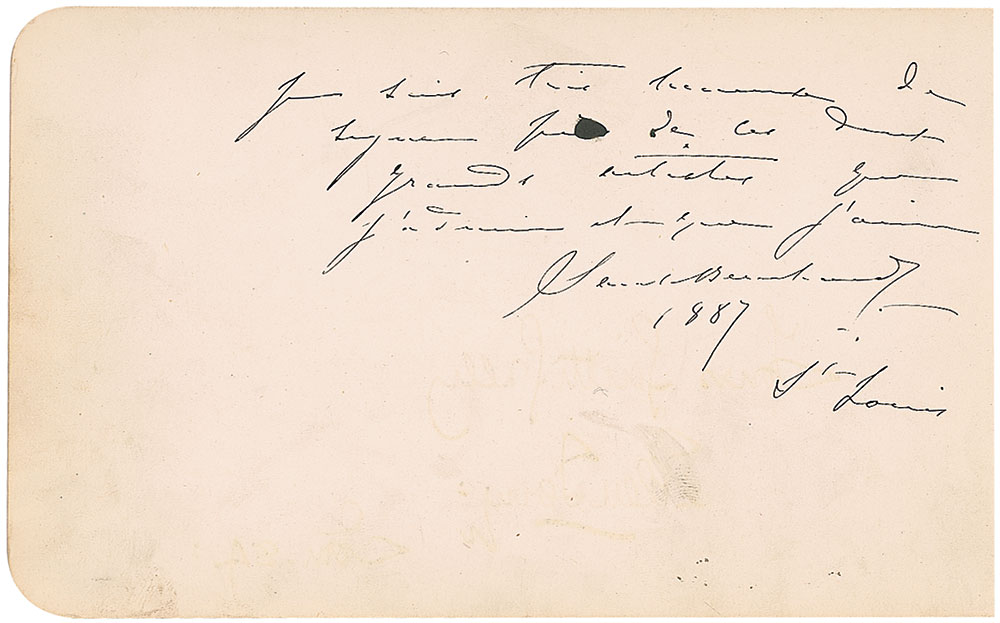 Je suis très heureuse de
signer près de ces deux
grands artistes que
j'admire et que j'aime
Sarah Bernhardt
1887
St Louis